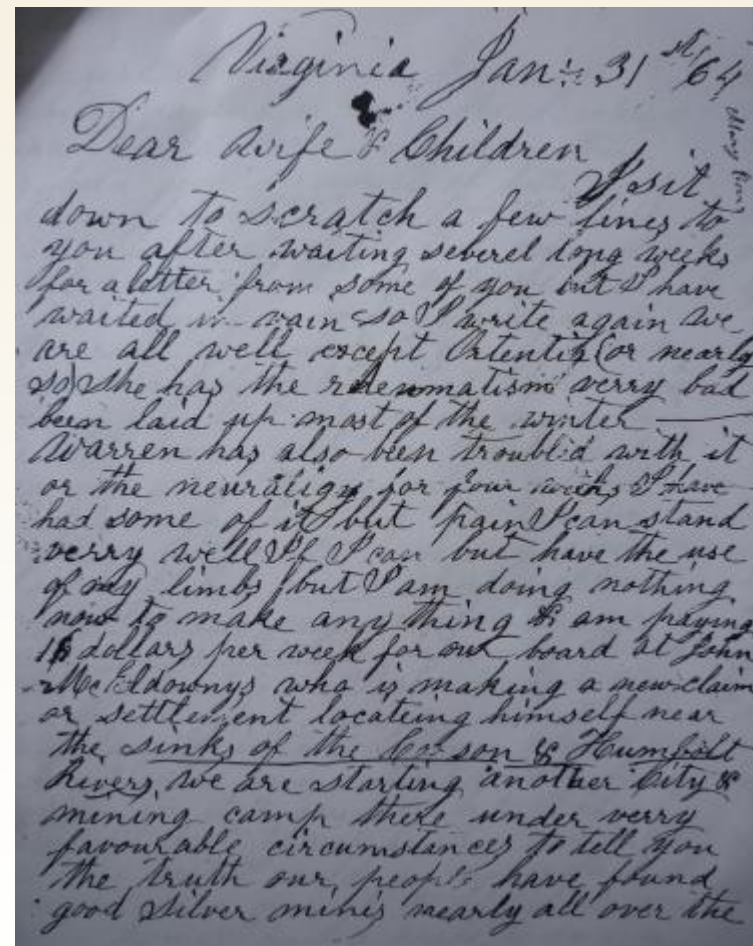 Virginia Jan: 31st 64
Dear Wife & Children
I sit
down to scratch a few lines to
you after waiting severel long weeks
for a letter from some of you but I have
waited in vain so I write again we
are all well except Ortentia (or nearly
so) she has the rheumatism verry bad
been laid up most of the winter
Warren has also been troubl'd with it
or the neuraligy for four weeks I have
had some of it but pain I can stand
verry well If I can but have the use
of my limbs but I am doing nothing
now to make any thing & am paying
16 dollars per week for our board at John
McEldownys who is making a new claim
or settlement locateing himself near
the sinks of the Carson & Humbolt
Rivers we are starting another City &
mining camp there under verry
favourable circumstances to tell you
the truth our people have found
good silver mines nearly all over the
Mary